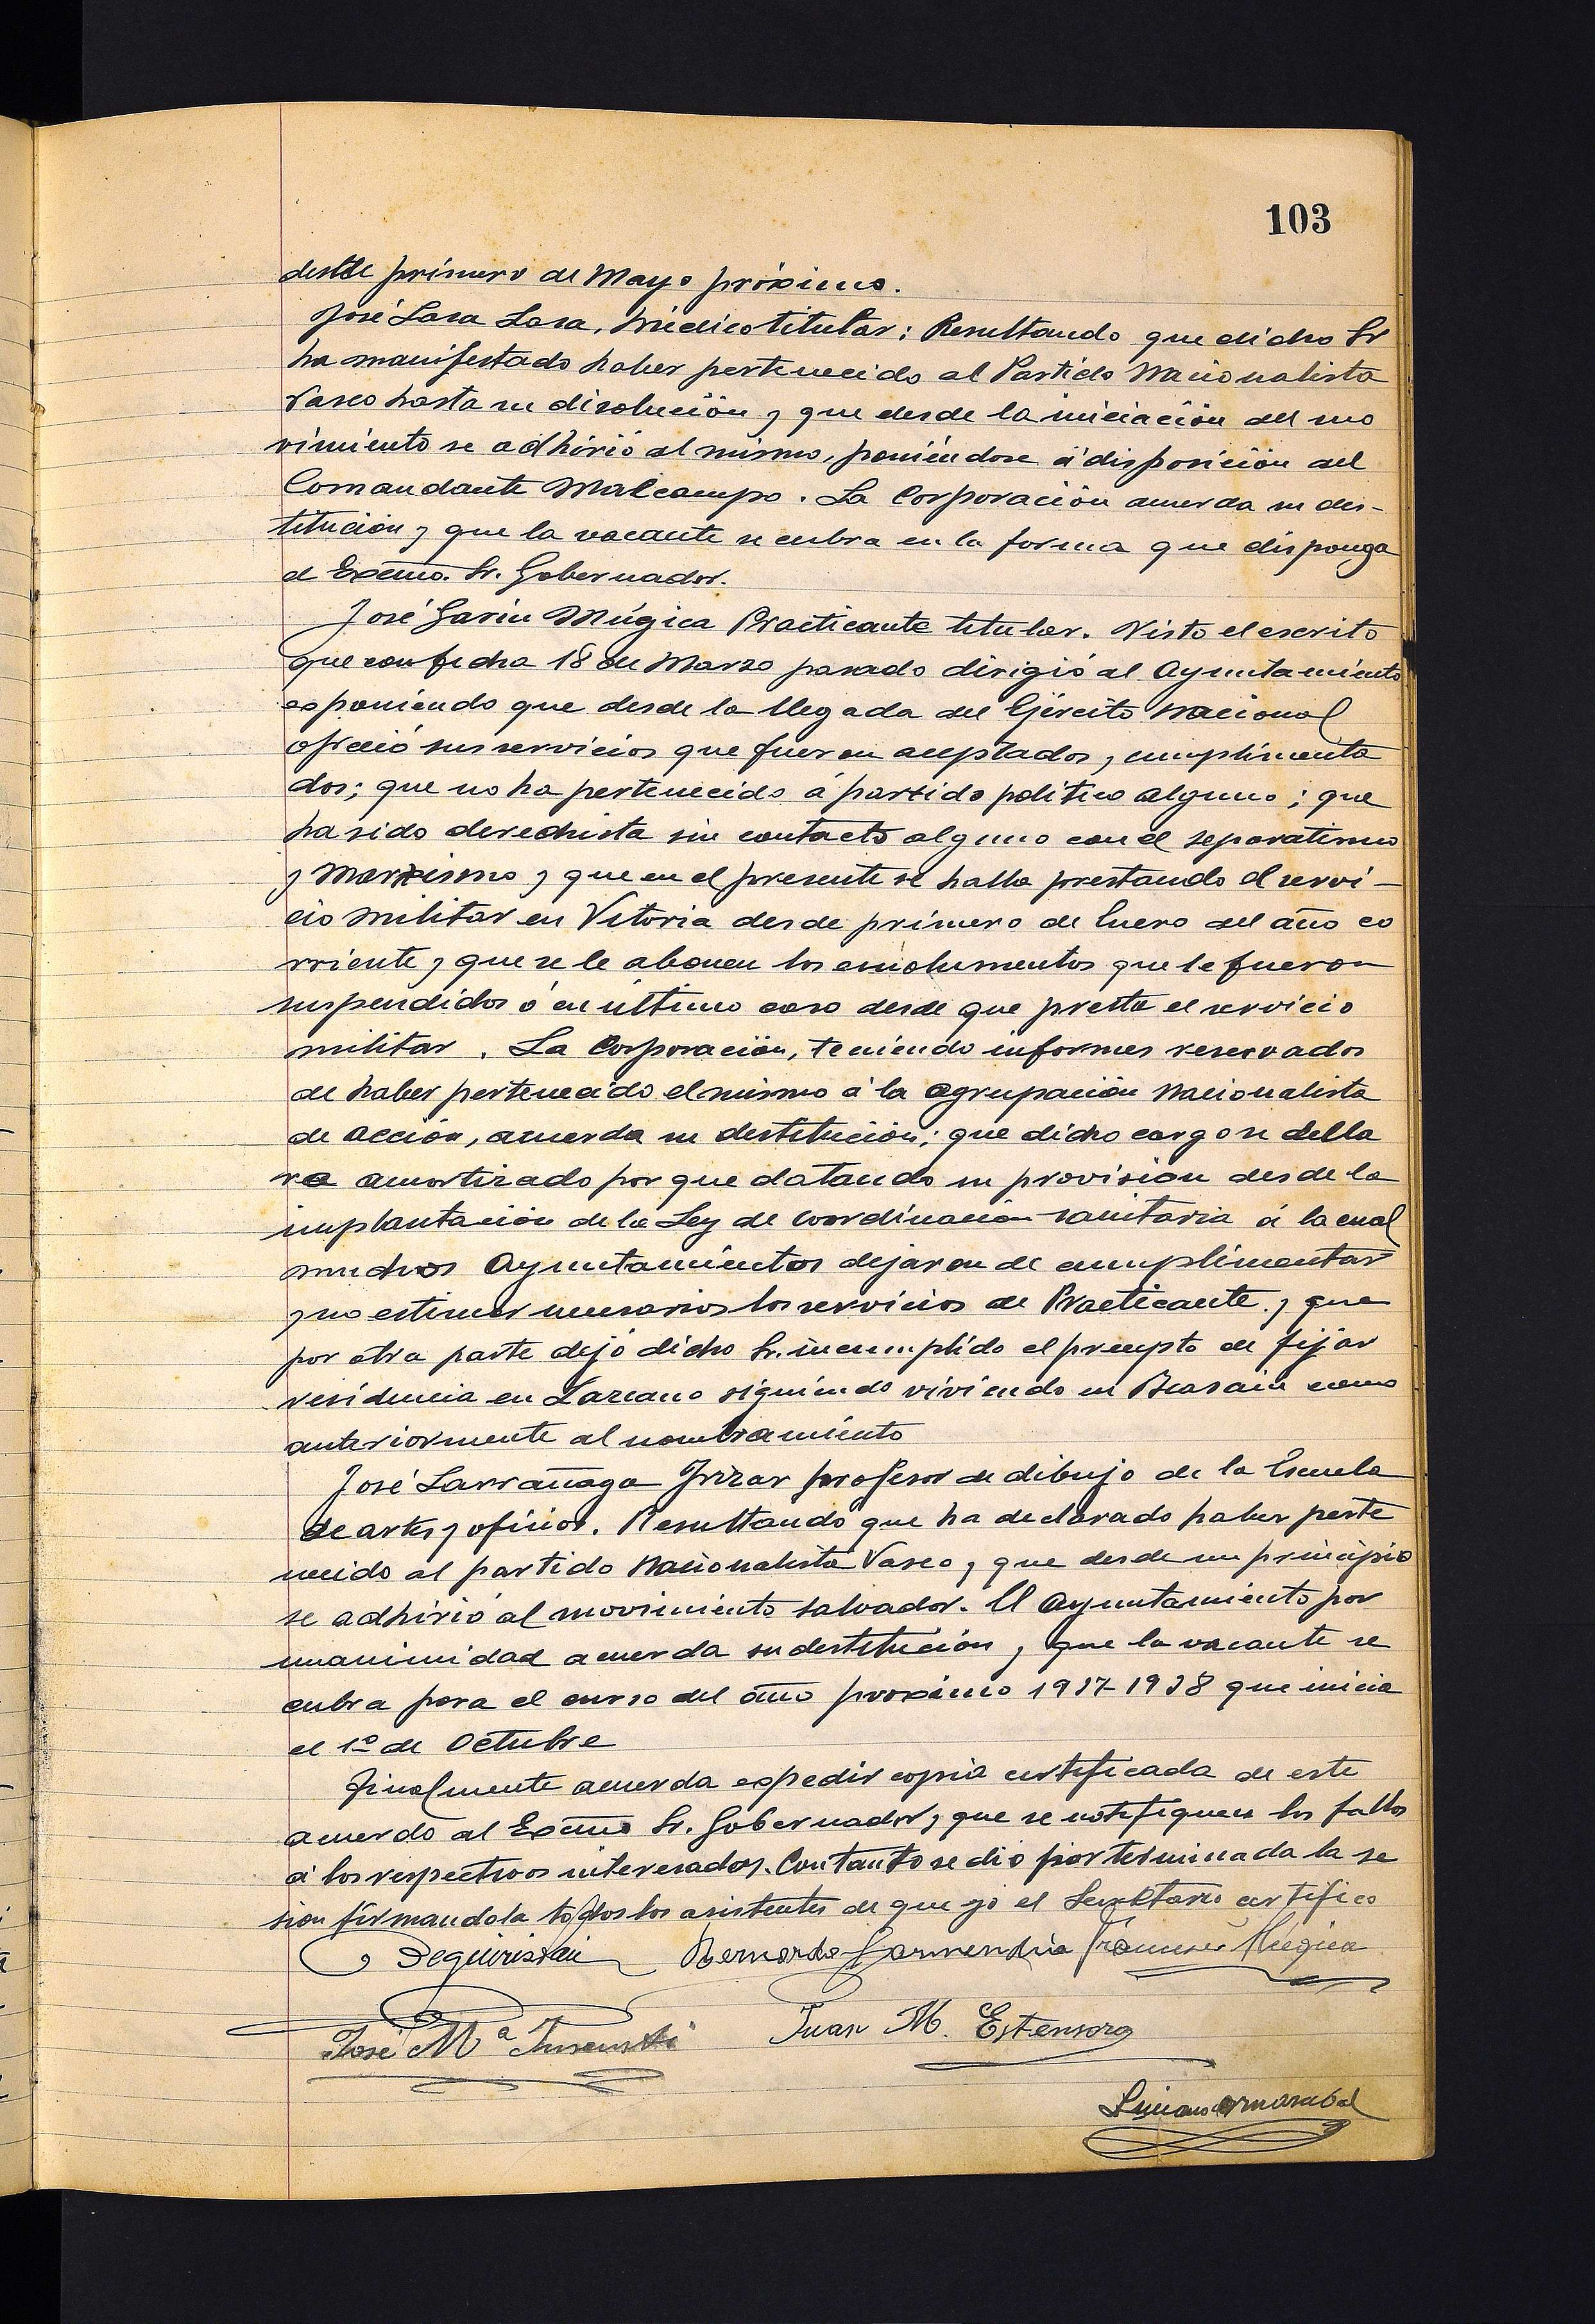 103
desde primero de Mayo próximo.
José Lasa Lasa, Médico titular: Resultando que dicho Sr
ha manifestado haber pertenecido al Partido Nacionalista
Vasco hasta su disolución y que desde la iniciación del mo
vimiento se adhirió al mismo, poniéndose á disposición del
Comandante Malcampo. La Corporación acuerda su des-
titución y que la vacante se cubra en la forma que disponga
el Excmo. Sr. Gobernador.
José Garin Múgica Practicante titular. Visto el escrito
que con fecha 18 de Marzo pasado dirigió al Ayuntamiento
exponiendo que desde la llegada del Ejército Nacional
ofreció sus servicios que fueron aceptados y cumplimenta
dos; que no ha pertenecido á partido politico alguno; que
ha sido derechista sin contacto alguno con el separatismo
y Marxismo y que en el presente se halla prestando el servi-
cio militar en Vitoria desde primero de Enero del año co
rriente y que se le abonen los emolumentos que le fueron
suspendidos ó en último caso desde que presta el servicio
militar. La Corporación, teniendo informes reservados
de haber pertenecido el mismo á la agrupación Nacionalista
de acción, acuerda su destitución; que dicho cargo se della
re amortizado por que datando su provisión desde la
implantación de la Ley de Coordinación sanitaria á la cual
muchos Ayuntamientos dejaron de cumplimentar
y no estimar necesarios los servicios de Practicante y que
por otra parte dejó dicho Sr. incumplido el precepto de fijar
residencia en Lazcano siguiendo viviendo en Beasain como
anteriormente al nombramiento
José Larrañaga Irizar profesor de dibujo de la Escuela
de artes y oficios. Resultando que ha declarado haber perte
necido al partido Nacionalista Vasco y que desde un principio
se adhirió al movimiento salvador. El Ayuntamiento por
unanimidad acuerda su destitución y que la vacante se
cubra para el curso del año proximo 1937-1938 que inicia
el 1º de Octubre
Finalmente acuerda expedir copia certificada de este
acuerdo al Excmo Sr. Gobernador y que se notifiquen los fallos
á los respectivos interesados. Con tanto se dió por terminada la se
sion firmandola todos los asistentes de que yo el Secretario certifico
Bernardo Garmendia Francisco Múgica
José Mª
Juan M. Estensoro